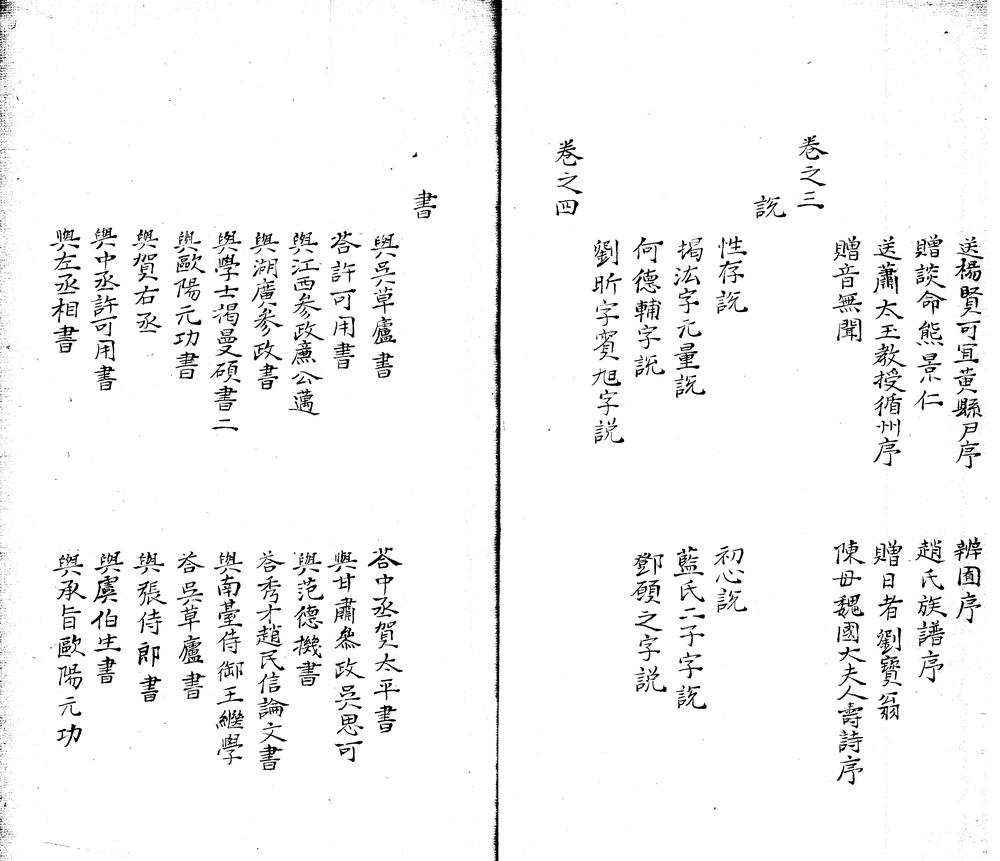 送楊賢可宜黃縣尹序
辨圅序
贈談命熊景仁
趙氏族譜序
送蕭太玉教授循州序
贈日者劉寶翁
贈音無聞
陳母魏國大夫人壽詩序
卷之三
說
性存說
初心說
揭汯字元量說
藍氏二子字說
何德輔字說
鄧願之字說
劉昕字賓旭字說
卷之四
書
與吳草廬書
荅中丞賀太平書
荅許可用書
與甘肅叅政吳思可
與江西参政廉公邁
與范德機書
與湖廣参政書
荅秀才趙民信論文書
與學士揭曼碩書二
與南臺侍御王繼學
與歐陽元功書
荅吳草廬書
與賀右丞
與張侍郎書
與中丞許可用書
與虞伯生書
與左丞相書
與承旨歐陽元功